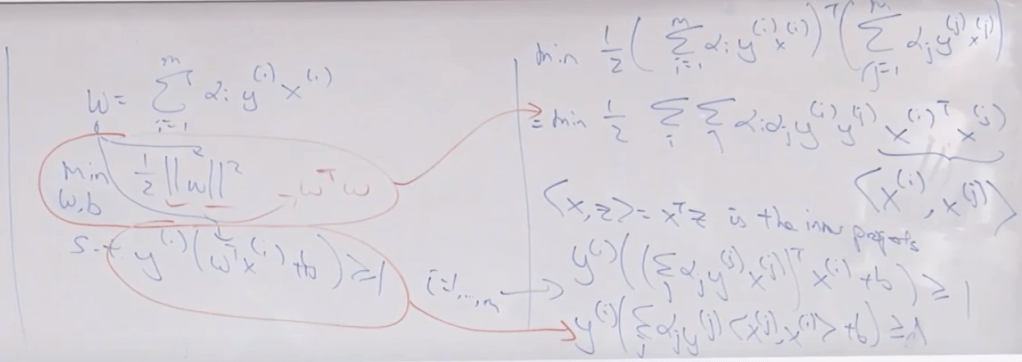 w = Σ_{i=1}^{m} α_i y^{(i)} x^{(i)}
min_{w,b} 1/2 ||w||^2 w^T w
s.t. y^{(i)} (w^T x^{(i)} + b) ≥ 1 i=1,...,m
min 1/2 ( Σ_{i=1}^{m} α_i y^{(i)} x^{(i)} )^T ( Σ_{j=1}^{m} α_j y^{(j)} x^{(j)} )
= min 1/2 Σ_i Σ_j α_i α_j y^{(i)} y^{(j)} x^{(i)T} x^{(j)}
⟨x^{(i)}, x^{(j)}⟩
⟨x, z⟩ = x^T z is the inner
y^{(i)} ( (Σ_j α_j y^{(j)} x^{(j)})^T x^{(i)} + b ) ≥ 1
y^{(i)} ( Σ_j α_j y^{(j)} ⟨x^{(j)}, x^{(i)}⟩ + b ) ≥ 1